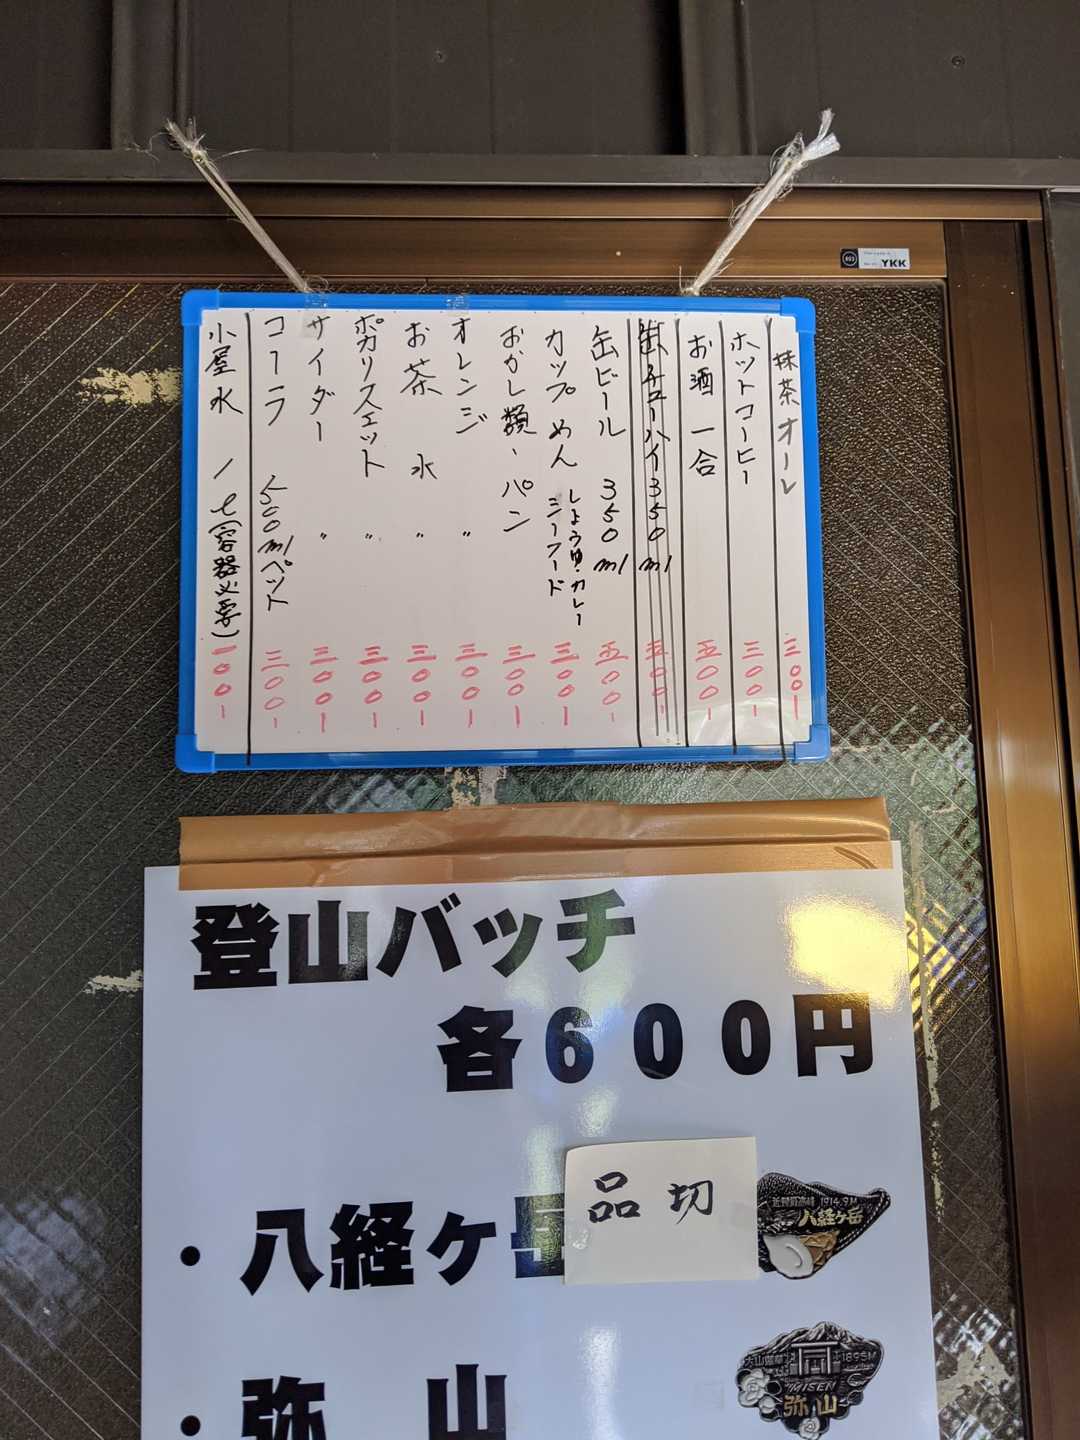 YKK
抹茶オーレ 三〇〇-
ホットコーヒー 三〇〇-
お酒 一合 五〇〇-
缶チューハイ 350ml 五〇〇-
缶ビール 350ml 五〇〇-
カップめん しょうゆ・カレー シーフード 三〇〇-
おかし類、パン 三〇〇-
オレンジ 〃 三〇〇-
お茶 水 〃 三〇〇-
ポカリスエット 〃 三〇〇-
サイダー 〃 三〇〇-
コーラ 500mlペット 三〇〇-
小屋水 1ℓ(容器必要) 一〇〇-
登山バッチ
各600円
・八経ケ岳
品切
近畿最高峰 1914.9M
八経ケ岳
・弥 山
1895M
MISEN
弥山